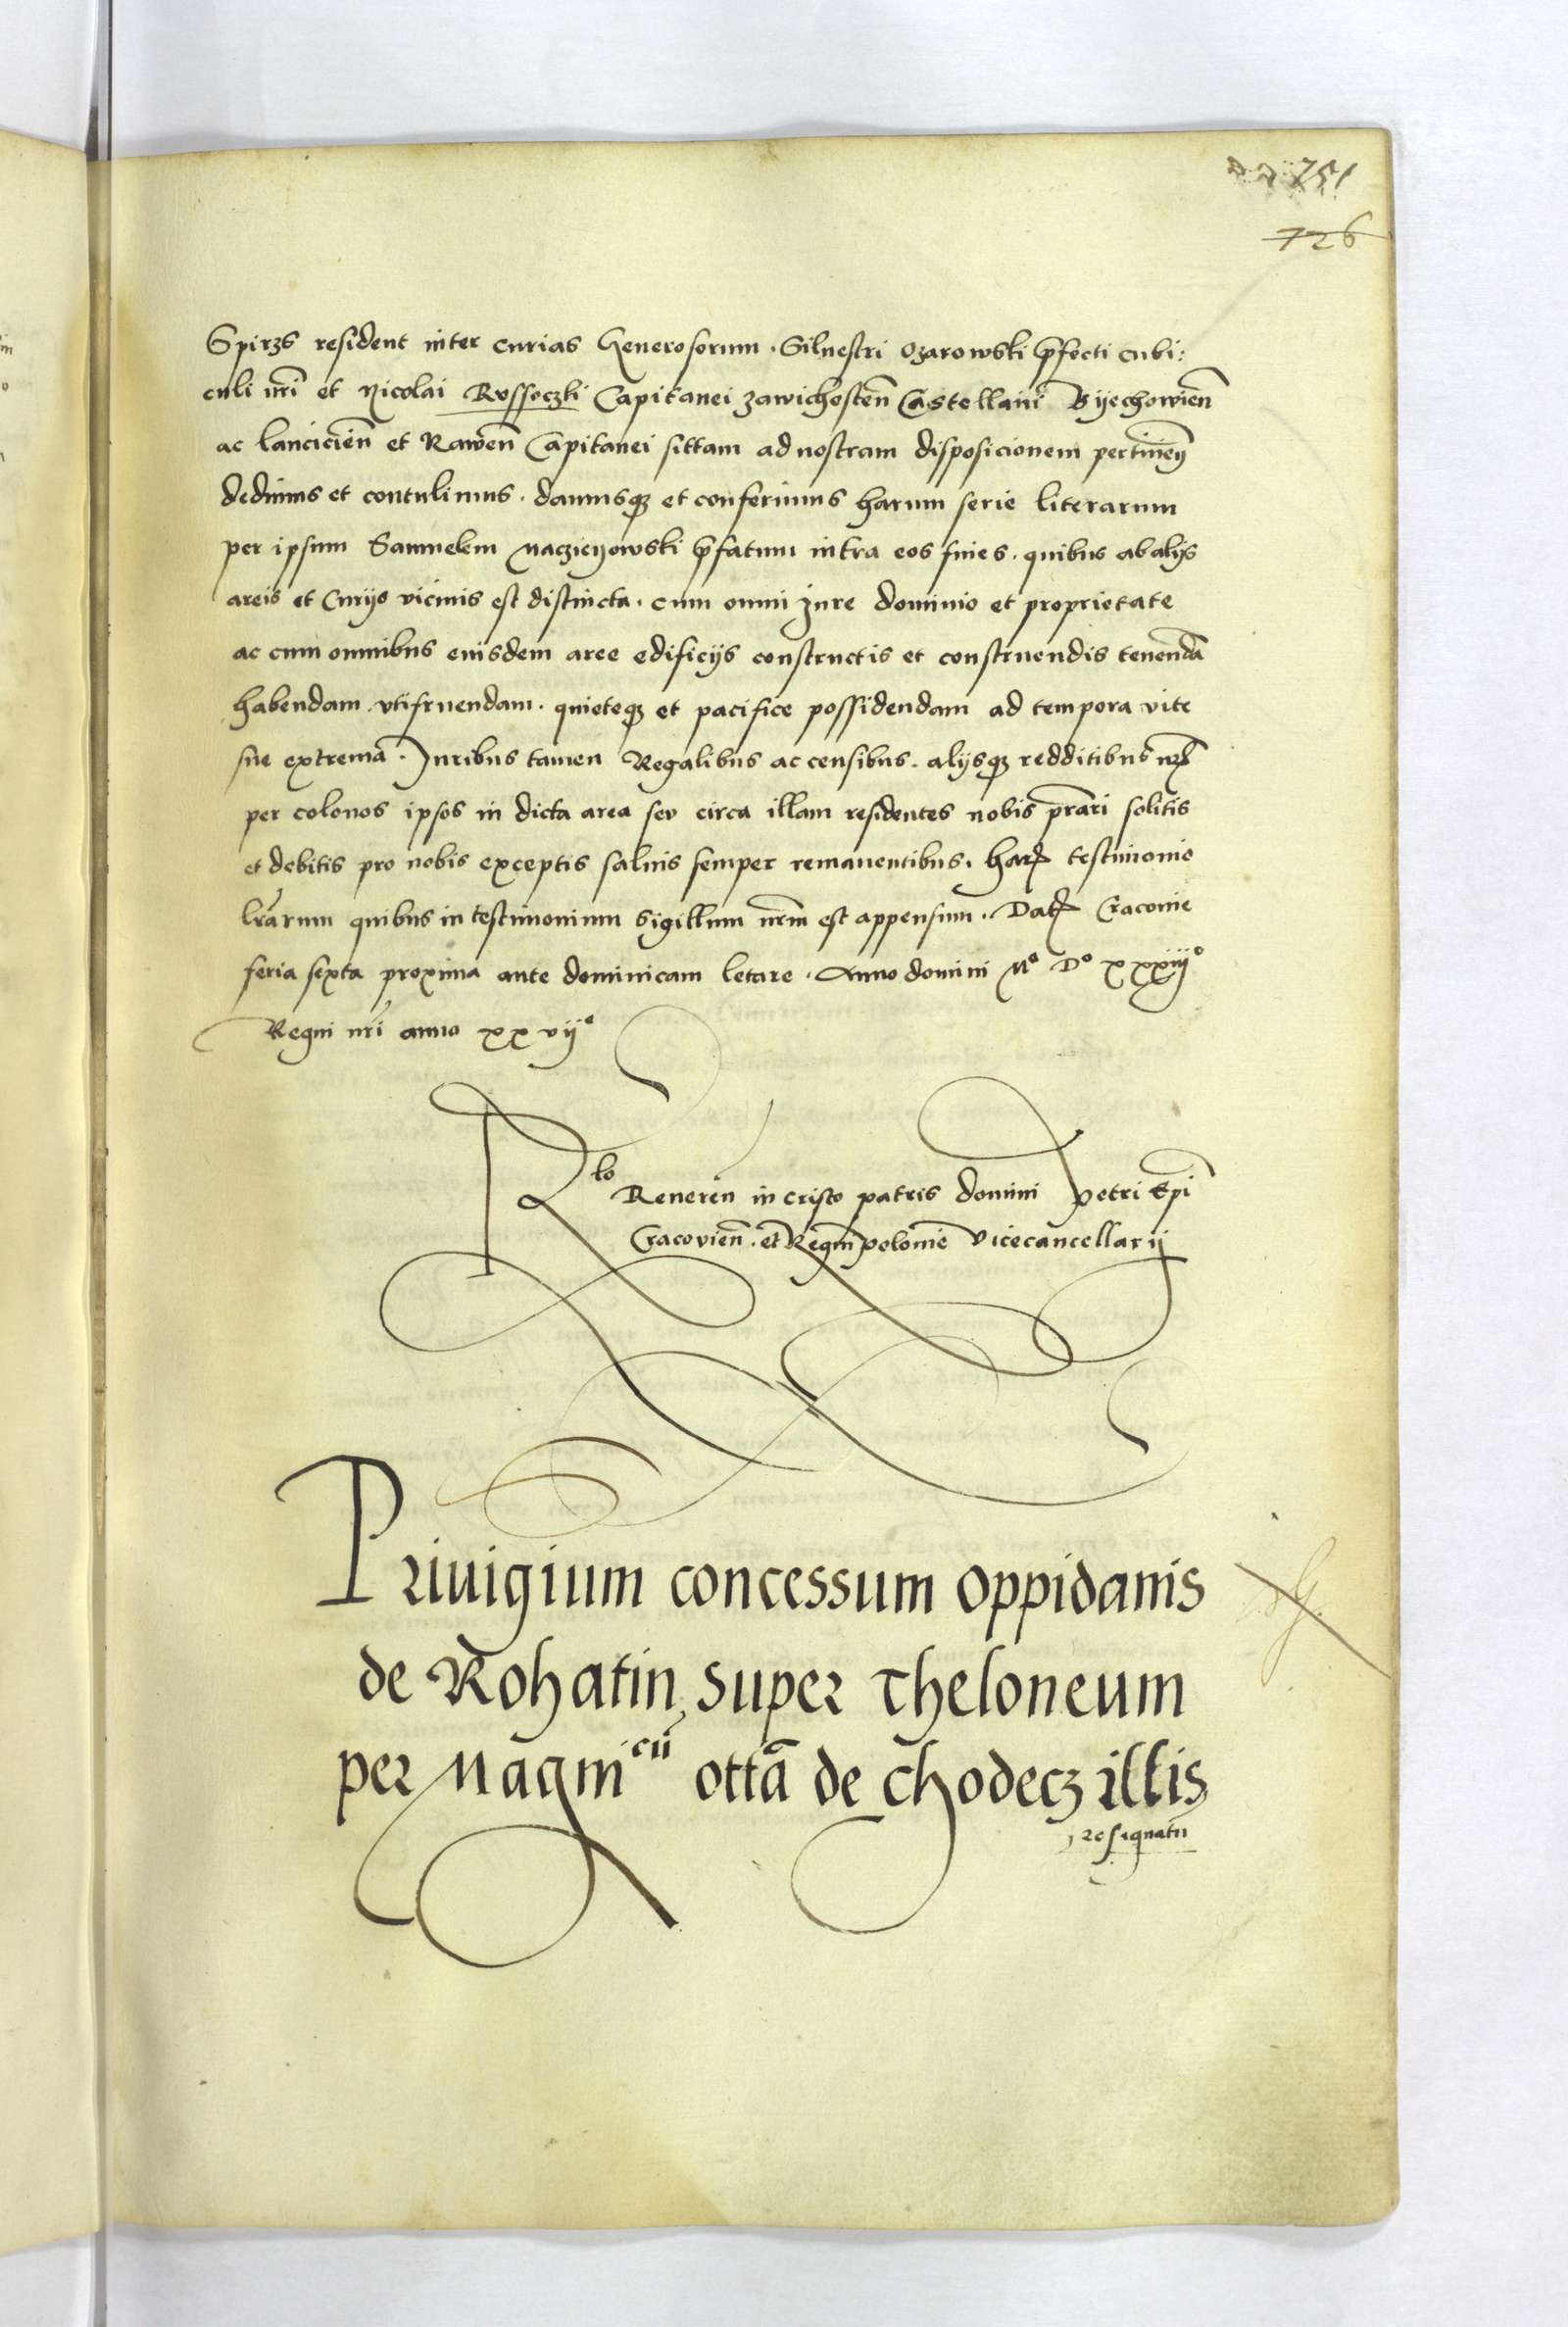 751
726
Spirzs resident inter curias Generosorum . Siluestri Ozarowski p̄fecti cubi:
culi nr̄i et Nicolai Russoczki Capitanei Zawichosten̄ Castellani Byechowien̄
ac lancicien̄ et Rawen̄ Capitanei sittam ad nostram disposicionem pertinen̄
dedimus et contulimus . damusqȝ et conferimus harum serie literarum
per ipsum Samuelem Maczieyowski p̄fatum intra eos fines . quibus ab alijs
areis et Curijs vicinis est distincta . cum omni Jure dominio et proprietate
ac cum omnibus eiusdem aree edificijs constructis et construendis tenendā
habendam . vtifruendam . quieteqȝ et pacifice possidendam ad tempora vite
sue extrema . Juribus tamen Regalibus ac censibus . alijsqȝ redditibus nr̄s
per colonos ipsos in dicta area seu circa illam residentes nobis p̄rari solitis
et debitis pro nobis exceptis saluis semper remanentibus . harꝝ testimonio
lr̄arum quibus in testimonium sigillum nr̄m est appensum . Datꝝ Cracouie
feria sexta proxima ante dominicam letare . Anno domini Mº Dº xxxiijº
Regni nr̄i anno xxvijº
Rlo Reueren̄ in cristo patris domini Petri Ep̄i
Cracouien̄ . et Regni polonie vicecancellarij
Priuigium concessum oppidanis
de Rohatin super Theloneum
per Magnicū ottā de chodecz illis
resignatū